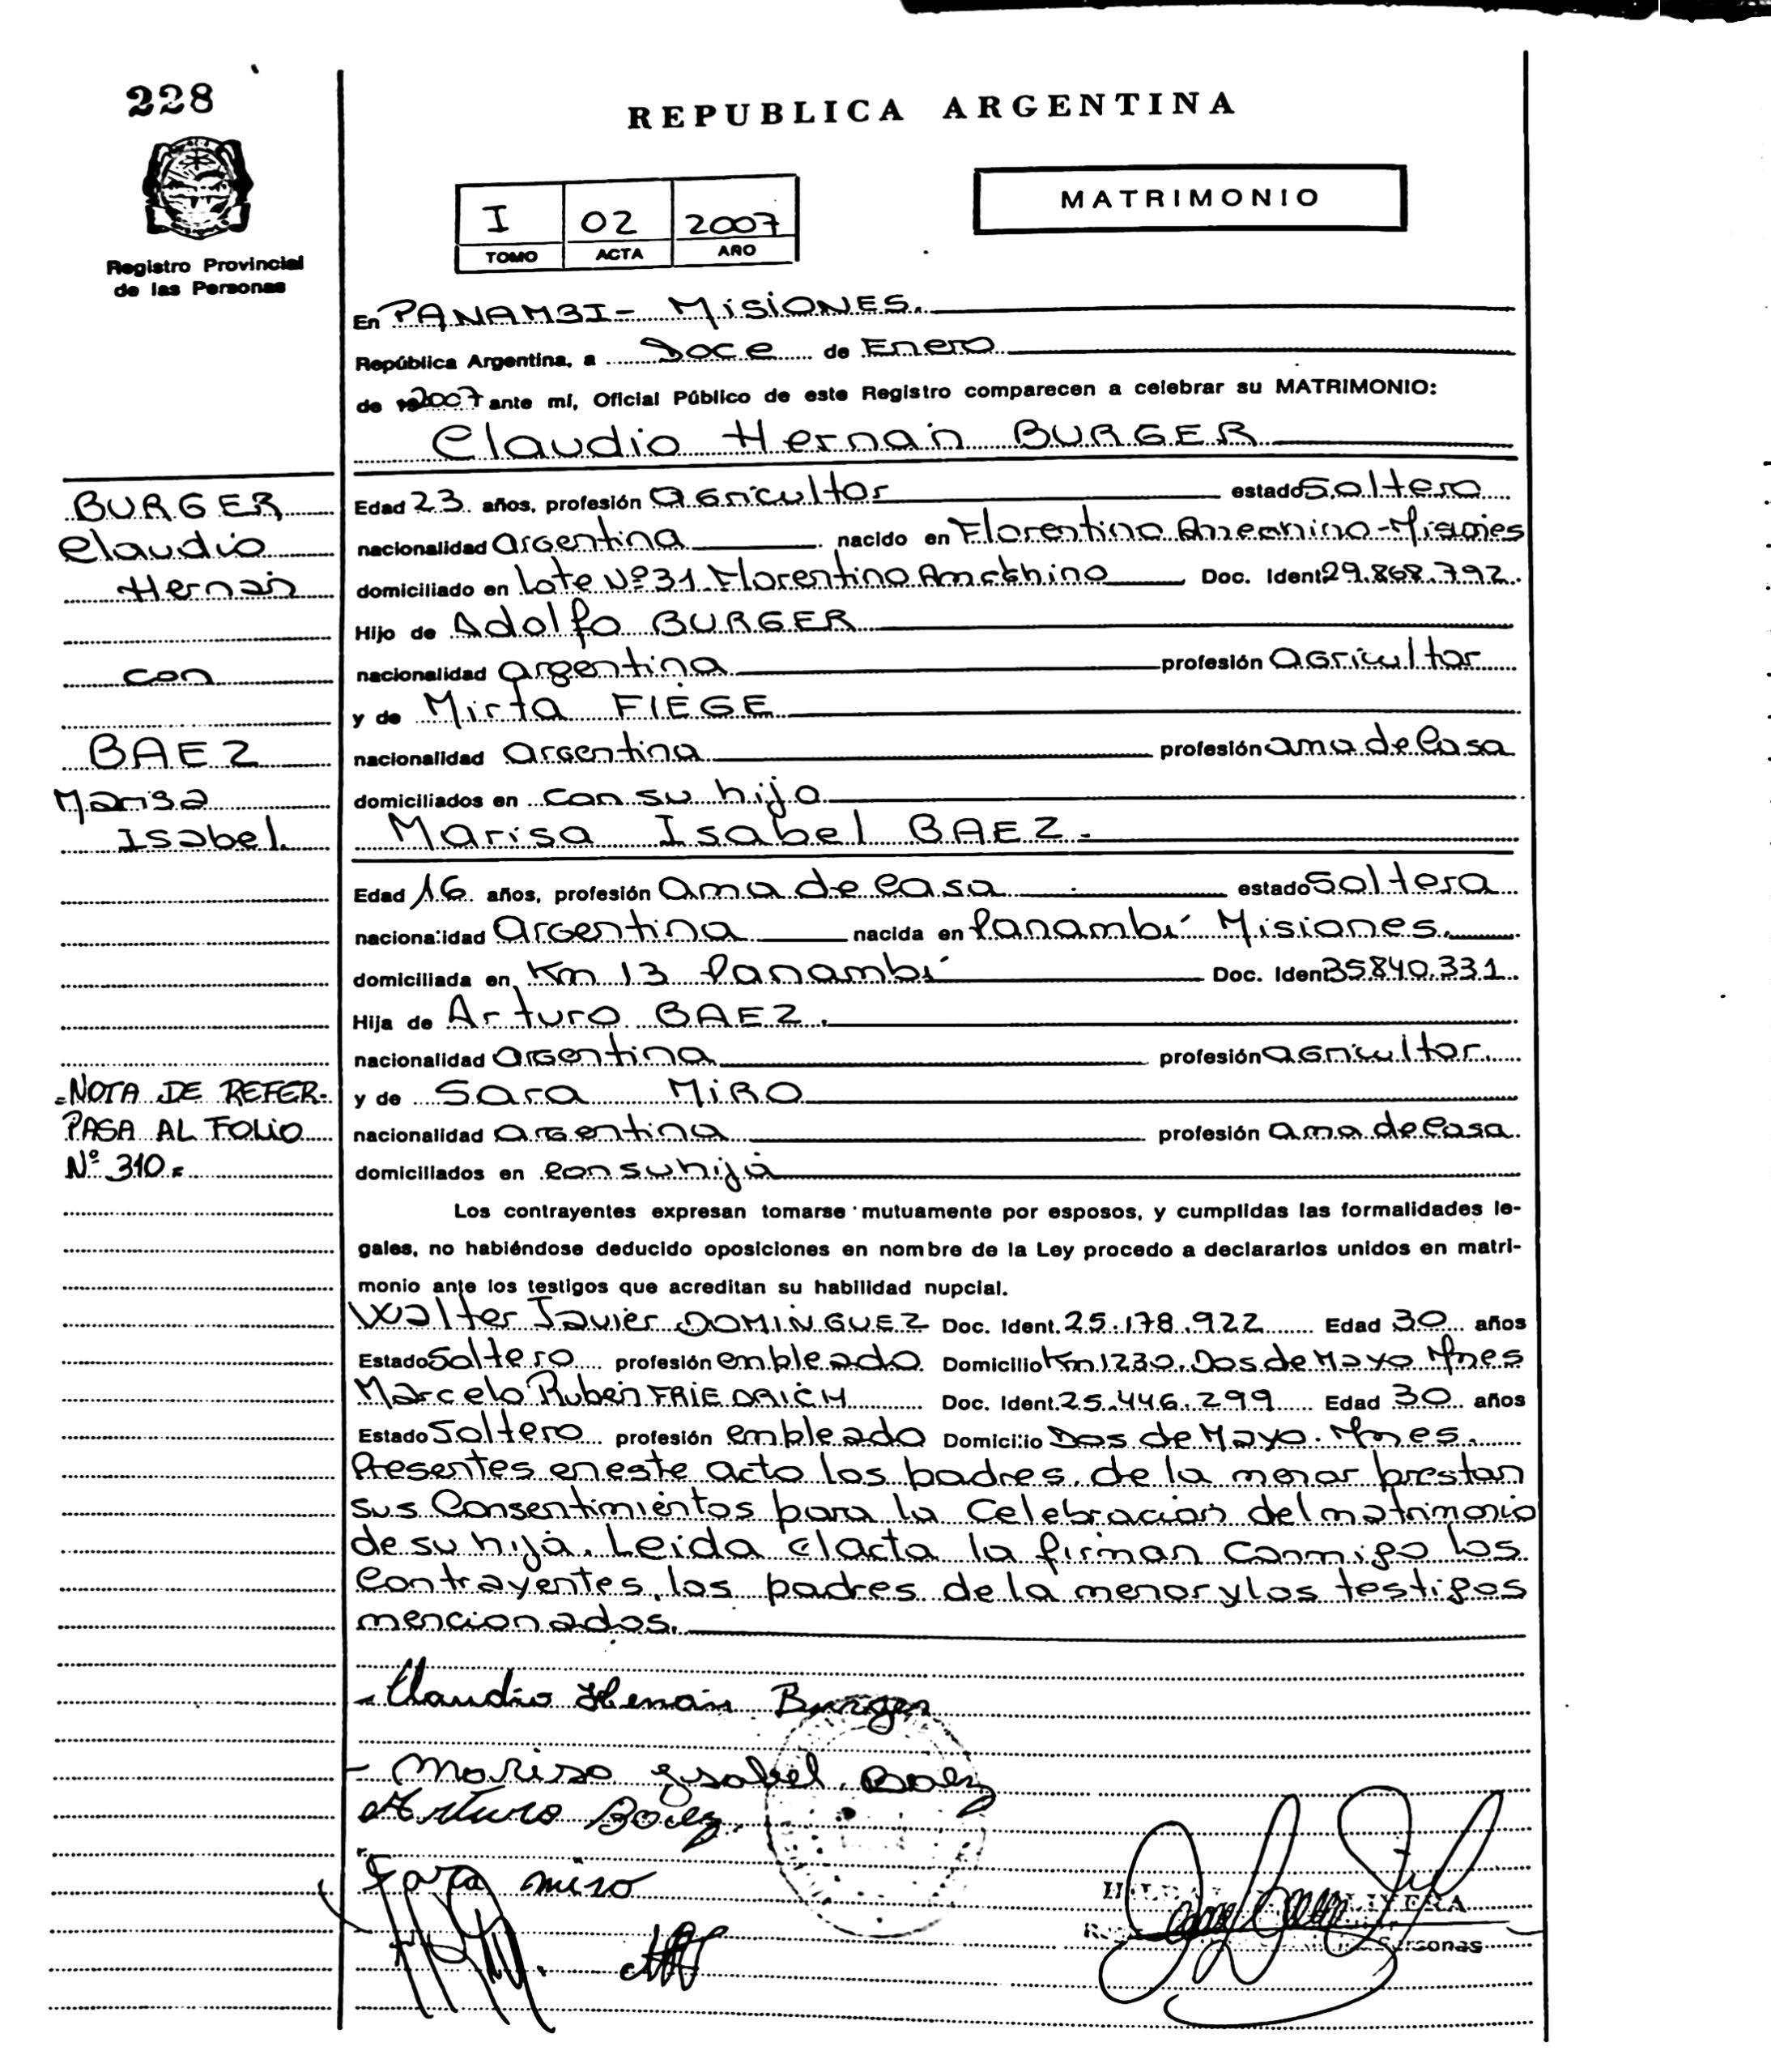 228
REPUBLICA ARGENTINA
I 02 2007
TOMO ACTA AÑO
MATRIMONIO
Registro Provincial
de las Personas
En PANAMBI- MisiONES.
República Argentina, a Doce de Enero
de 2007 ante mí, Oficial Público de este Registro comparecen a celebrar su MATRIMONIO:
Claudio Hernán BURGER
BURGER
Claudio
Hernán
con
BAEZ
Marisa
Isabel.
Edad 23 años, profesión agricultor estado Soltero
nacionalidad argentina nacido en Florentino Ameghino-Misiones
domiciliado en Lote Nº31 Florentino Ameghino Doc. Ident. 29.868.792.
Hijo de Adolfo BURGER
nacionalidad argentina profesión agricultor
y de Mirta FIEGE
nacionalidad argentina profesión ama de Casa
domiciliados en con su hijo
Marisa Isabel BAEZ.
Edad 16 años, profesión ama de Casa estado Soltera
nacionalidad argentina nacida en Panambí Misiones.
domiciliada en Km 13 Panambí Doc. Ident. 35.840.331.
Hija de Arturo BAEZ.
nacionalidad argentina profesión agricultor.
y de Sara MiRO
nacionalidad argentina profesión ama de Casa.
domiciliados en con su hija
=NOTA DE REFER-
PASA AL FOLIO
Nº 310.=
Los contrayentes expresan tomarse mutuamente por esposos, y cumplidas las formalidades le-
gales, no habiéndose deducido oposiciones en nombre de la Ley procedo a declararlos unidos en matri-
monio ante los testigos que acreditan su habilidad nupcial.
Walter Javier DOMINGUEZ Doc. Ident. 25.178.922 Edad 30 años
Estado Soltero profesión empleado Domicilio Km 1230. Dos de Mayo Mnes
Marcelo Ruben FRIEDRICH Doc. Ident. 25.446.299 Edad 30 años
Estado Soltero profesión empleado Domicilio Dos de Mayo. Mnes.
Presentes en este acto los padres de la menor prestan
sus Consentimientos para la Celebración del matrimonio
de su hija. Leida el acta la firman conmigo los
Contrayentes, los padres de la menor y los testigos
mencionados.
- Claudio Hernán Burger
- Marisa Ysabel Baez
Arturo Baez.
Sara miro